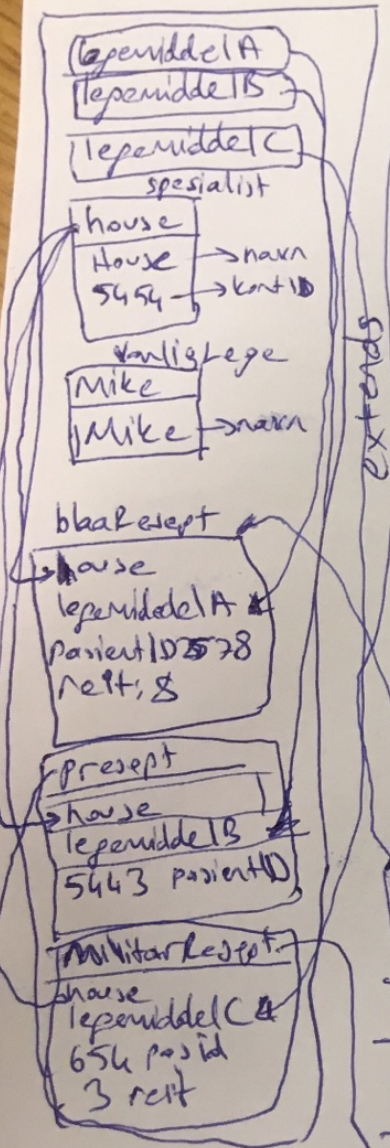 legemiddelA
legemiddelB
legemiddelC
spesialist
house
House → navn
5454 → kontID
vanligLege
Mike
Mike → navn
extends
blaaResept
house
legemiddelA
pasientID 2578
reit: 8
presept
house
legemiddelB
5443 pasientID
militarResept
house
legemiddelC
654 pasid
3 reit